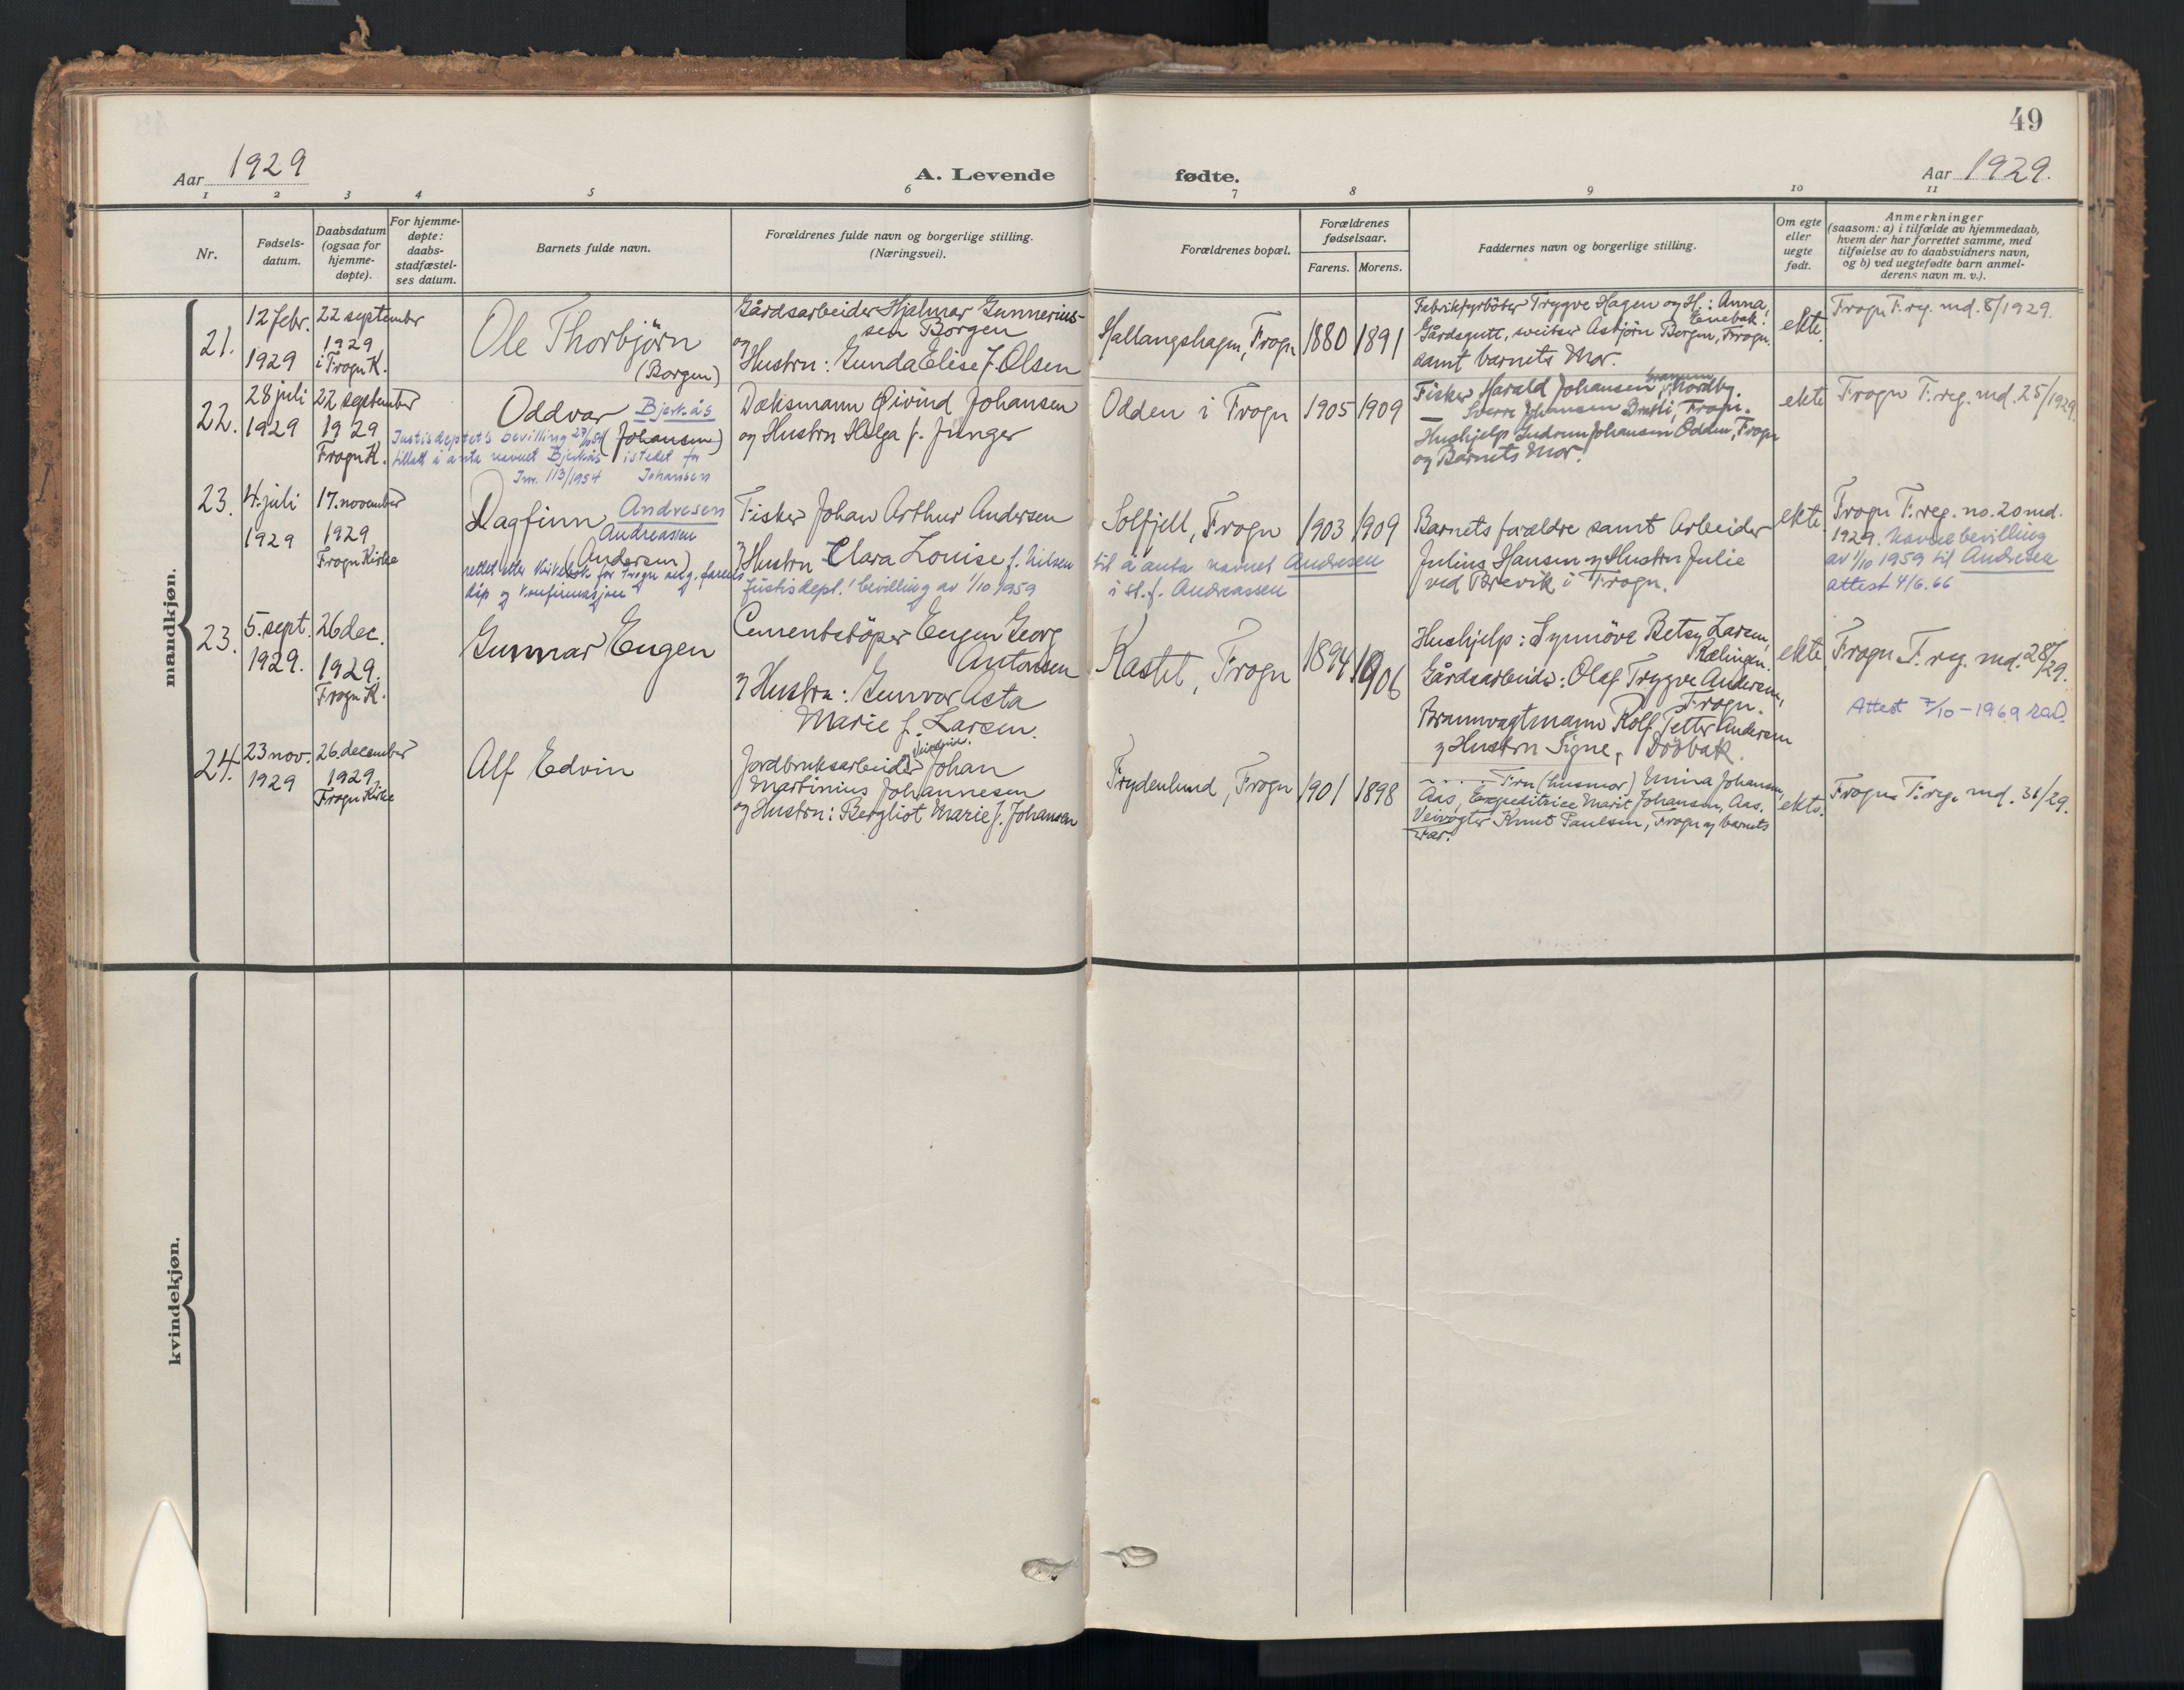 49
Aar 1929
A. Levende
fødte.
Aar 1929.
1 2 3 4 5 6 7 8 9 10 11
Nr.
Fødsels-
datum.
Daabsdatum
(ogsaa for
hjemme-
døpte).
For hjemme-
døpte:
daabs-
stadfæstel-
ses datum.
Barnets fulde navn.
Forældrenes fulde navn og borgerlige stilling.
(Næringsvei).
Forældrenes bopæl.
Forældrenes
fødselsaar.
Farens. Morens.
Faddernes navn og borgerlige stilling.
Om egte
eller
uegte
født.
Anmerkninger
(saasom: a) i tilfælde av hjemmedaab,
hvem der har forrettet samme, med
tilføielse av to daabsvidners navn,
og b) ved uegtefødte barn anmel-
derens navn m. v.).
mandkjøn.
21.
12 febr.
1929
22 september
1929
i Frogn K.
Ole Thorbjörn
(Borgen)
Gårdsarbeider Hjalmar Gunnerius-
sen Borgen
og
Hustru: Gunda Elise f. Olsen
Hallangshagen, Frogn
1880
1891
Fabrikfyrböter Trygve Hagen og H.: Anna,
Enebak.
Gårdsgutt, Asbjörn Borgen, Frogn.
samt barnets Mor.
ekte.
Frogn F. reg. md. 8/1929.
22.
28 juli
1929
22 september
1929
Frogn K.
Oddvar Bjerkås
(Johansen)
Justisdeptet's bevilling
tillatt å anta navnet Bjerkås istedet for
Johansen
Inr. 113/1954
Dæksmann Öivind Johansen
og Hustru Helga f. Junger
Odden i Frogn
1905
1909
Fisker Harald Johansen, Nordby.
— Sverre Johansen, Frogn.
Hushjelp Gudrun Johansen Odden, Frogn
og Barnets Mor.
ekte
Frogn F. reg. md. 25/1929.
23.
4. juli
1929
17. november
1929
Frogn Kirke
Dagfinn Andresen
Andreassen
(Andersen)
rettet etter kirkebok for Frogn ang. farens
dåp og konfirmasjon
Fisker Johan Arthur Andersen
og Hustru Clara Louise f. Nilsen
Justisdept.! bevilling av 1/10 1959
Solfjell, Frogn
til å anta navnet Andresen
i st. f. Andreassen
1903
1909
Barnets forældre samt Arbeider
Julius Hansen og Hustru Julie
ved Brevik i Frogn.
ekte.
Frogn F. reg. no. 20 md.
1929. Navnebevilling
av 1/10 1959 til Andresen
attest 4/6.66
23.
5. sept.
1929.
26 dec.
1929.
Frogn K.
Gunnar Eugen
Cementstöper Eugen Georg
Antonsen
og Hustru: Gunvor Asta
Marie f. Larsen.
Kastet, Frogn
1894
1906
Hushjelp: Synnöve Betsy Larsen,
Rælingen.
Gårdsarbeider: Olaf Trygve Andersen,
Frogn.
Rolf Petter Andersen
og Hustru Signe, Dröbak.
ekte
Frogn F. reg. md. 28/29.
Attest 7/10 - 1969
24.
23 nov.
1929
26. december
1929.
Frogn Kirke
Alf Edvin
Jordbruksarbeider Johan
Martinius Johannesen
og Hustru: Bergliot Marie f. Johansen
Frydenlund, Frogn
1901
1898
Fru (husmor) Mina Johansen,
Aas, Expeditrice Marit Johansen, Aas.
Veivogter Knut Paulsen, Frogn og barnets
Far.
ekte.
Frogn F. reg. md. 31/29.
kvindekjøn.